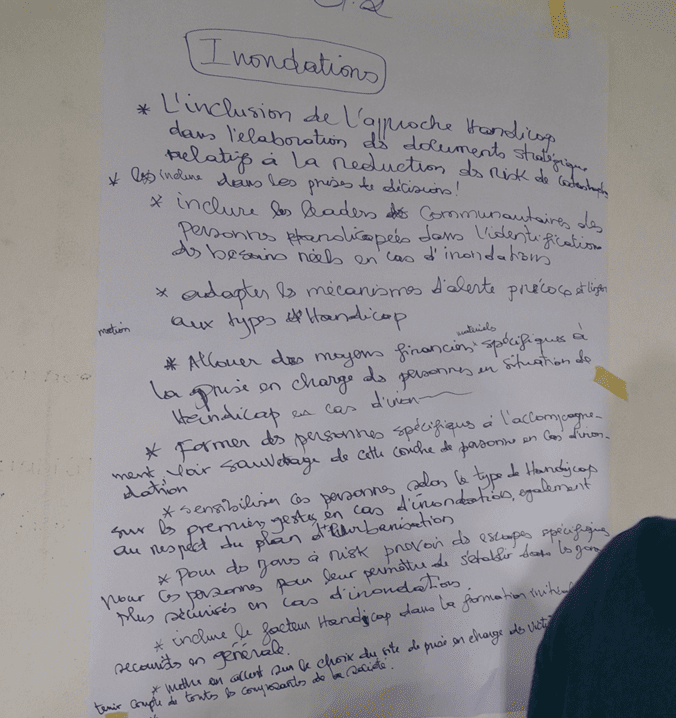 G.2
Inondations
* L'inclusion de l'approche Handicap
dans l'élaboration ds documents stratégique
relatifs à la reduction ds Risk de catastrophes
* les inclure dans les prises de décisions !
* inclure les leaders Communautaires des
personnes Handicapées dans l'identification
ds besoins réels en cas d'inondations
* adapter ls mécanismes d'alerte précoce et
aux types d'Handicap
matériels
* Allouer des moyens financiers spécifiques à
la prise en charge ds personnes en situation de
Handicap en cas d'inon
* Former des personnes spécifiques à l'accompagne-
ment, voir sauvetage de cette couche de personne en cas d'inon-
dation
* sensibiliser ces personnes selon le type de Handicap
sur ls premiers gestes en cas d'inondation, également
au respect du plan d'urbanisation
* Pour ds zones à risk prevoir ds escapes spécifiques
pour ces personnes pour leur permettre de s'établir dans ls zones
plus sécurisés en cas d'inondations
* inclure le facteur Handicap dans la formation
securités en générale.
* mettre en accent sur le choix du site de prise en charge des
tenir compte de toutes les composants de la société.